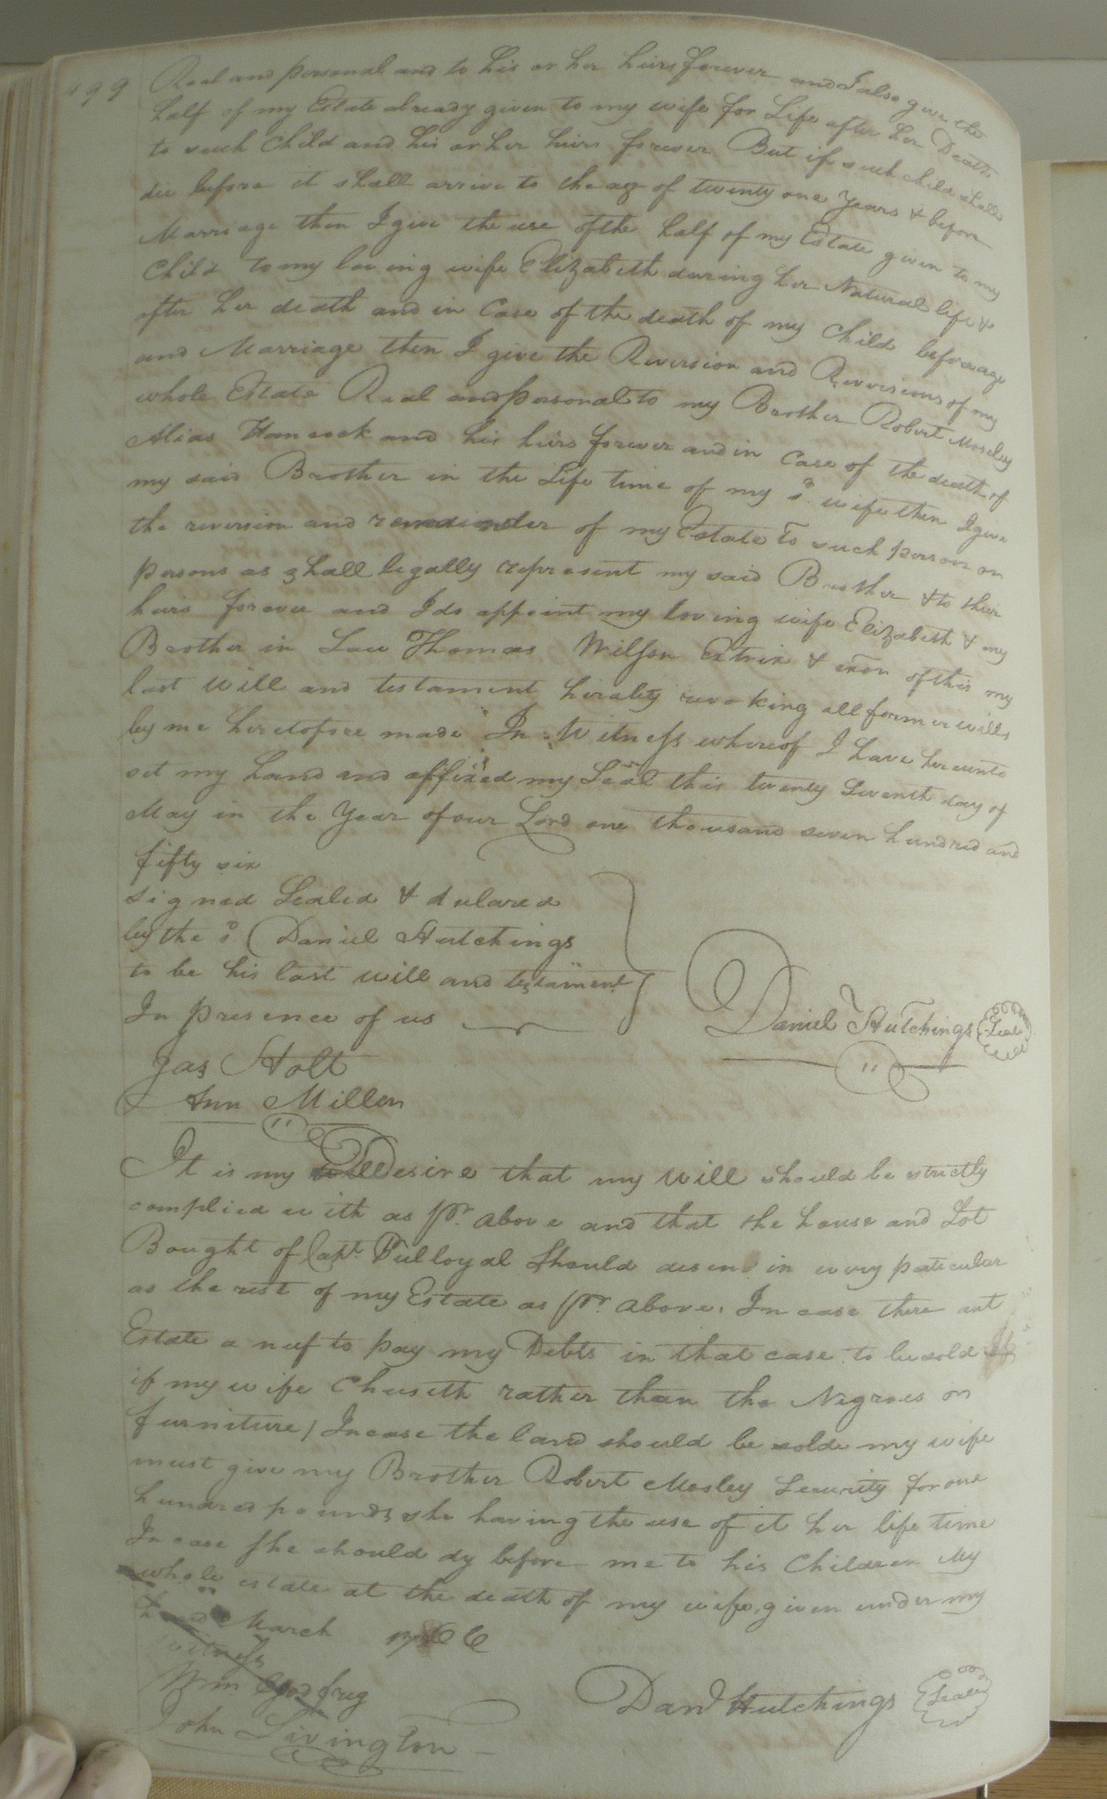 499
Real and personal and to his or her heirs forever and I also give the
half of my Estate already given to my wife for Life after her Death
to such Child and his or her heirs forever But if such child shall
die before it shall arrive to the age of twenty one Years & before
Marriage then I give the use of the half of my Estate given to my
Child to my loving wife Elizabeth during her Natural life &
after her death and in Case of the death of my Child before age
and Marriage then I give the Reversion and Reversions of my
whole Estate Real and personal to my Brother Robert Moseley
Alias Hancock and his heirs forever and in Case of the death of
my said Brother in the Life time of my sd. wife then I give
the reversion and remainder of my Estate to such person or
persons as shall legally represent my said Brother & to their
heirs forever and I do appoint my loving wife Elizabeth & my
Brother in Law Thomas Willson Extrix & exor of this my
last will and testament hereby revoking all former wills
by me heretofore made In Witness whereof I have hereunto
set my hand and affixed my Seal this twenty Seventh day of
May in the Year of our Lord one thousand seven hundred and
fifty six
Signed Sealed & declared
by the sd Daniel Hutchings
to be his last will and testament
In presence of us
Daniel Hutchings Seal
Jas Holt
Ann Miller
It is my Desire that my will should be strictly
complied with as pr. above and that the house and Lot
Bought of Capt. Tulloyal Should in every paticular
as the rest of my Estate as pr. above. In case there ant
Estate a nuf to pay my Debts in that case to be sold
if my wife Chuseth rather than the Negroes or
furniture / Incase the land should be solde my wife
must give my Brother Robert Mosley Security for one
hundred pounds she having the use of it her life time
In case she should dy before me to his Children My
whole estate at the death of my wife, given under my
March 1766
Witness
Wm Godfrey
John Livington
Danl Hutchings Seal